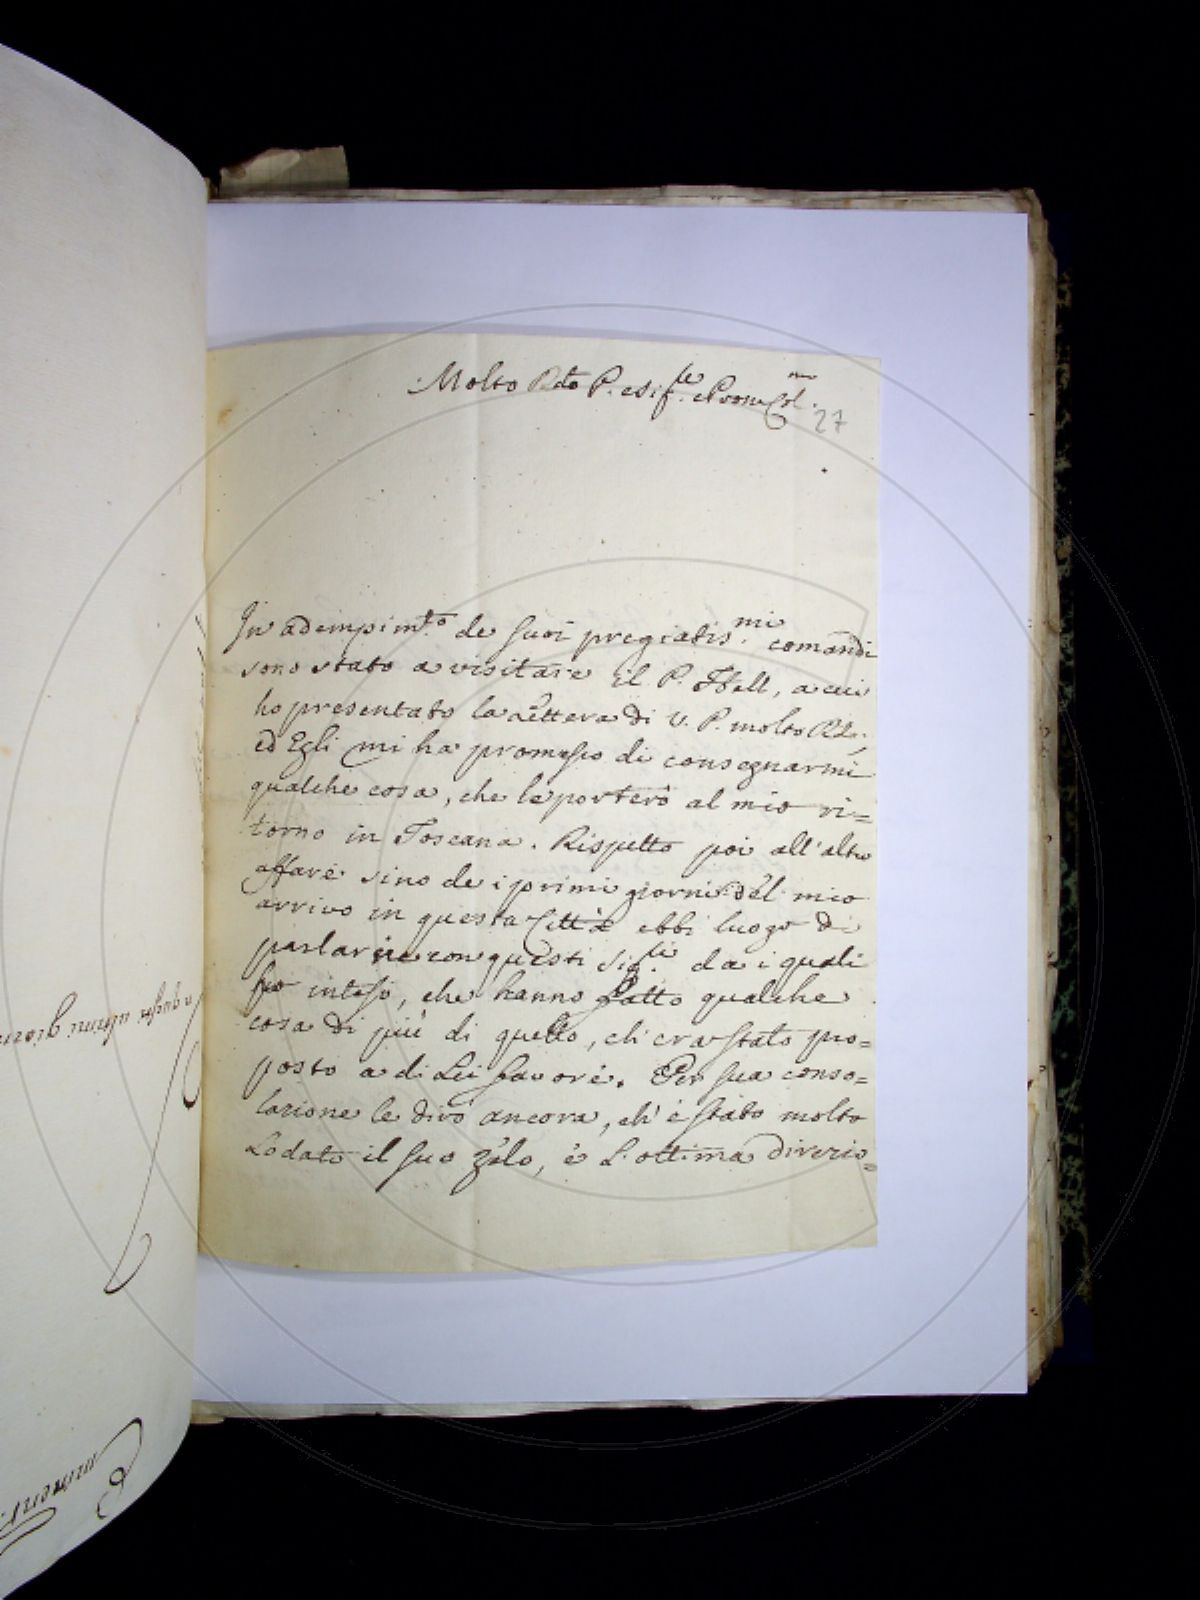 Molto Rdo P. e Sig.re e Pron Col.mo
27
In adempim.to de suoi pregiatis.mi comandi
sono stato a visitare il P. Hell, a cui
ho presentato la lettera di V. P. molto Rda;
ed Egli mi ha promesso di consegnarmi
qualche cosa, che le porterò al mio ri=
torno in Toscana. Rispetto poi all'altro
affare sino de i primi giorni del mio
arrivo in questa Città ebbi luogo di
parlarne con questi Sig.ri da i quali
fuo inteso, che hanno fatto qualche
cosa di più di quello, ch'era stato pro=
posto a di Lei favore. Per sua conso=
lazione le dirò ancora, ch'è stato molto
Lodato il suo zelo, è L'ottima direzio=
in questi ultimi giorni